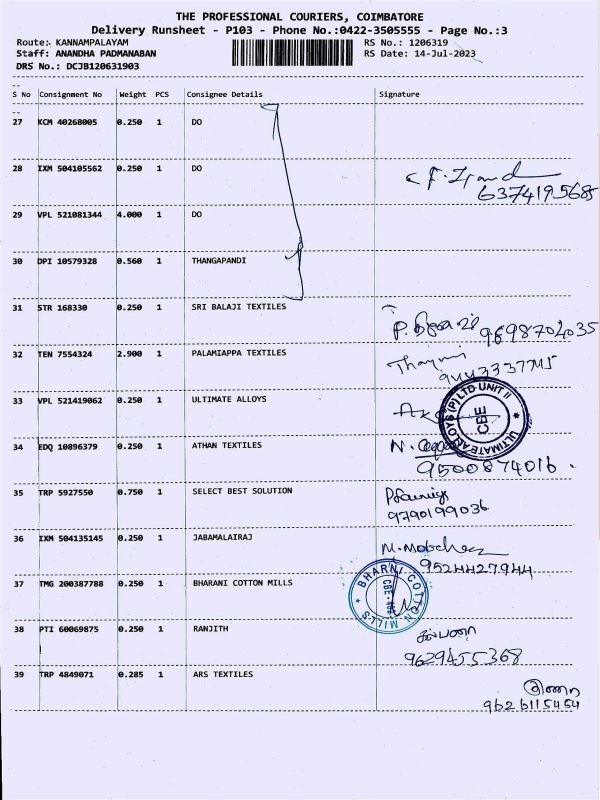 THE PROFESSIONAL COURIERS, COIMBATORE
Delivery Runsheet - P103 - Phone No.:0422-3505555 - Page No.:3
Route: KANNAMPALAYAM RS No.: 1206319
Staff: ANANDHA PADMANABAN RS Date: 14-Jul-2023
DRS No.: DCJB120631903
--
S No Consignment No Weight PCS Consignee Details Signature
--
27 KCM 40268005 0.250 1 DO
28 IXM 504105562 0.250 1 DO
6374195685
29 VPL 521081344 4.000 1 DO
30 DPI 10579328 0.560 1 THANGAPANDI
31 STR 168330 0.250 1 SRI BALAJI TEXTILES
9698704035
32 TEN 7554324 2.900 1 PALAMIAPPA TEXTILES
33 VPL 521419062 0.250 1 ULTIMATE ALLOYS
ULTIMATE ALLOYS (P) LTD UNIT II
CBE
34 EDQ 10896379 0.250 1 ATHAN TEXTILES
9500874016.
35 TRP 5927550 0.750 1 SELECT BEST SOLUTION
9790199036
36 IXM 504135145 0.250 1 JABAMALAIRAJ
9524427944
37 TMG 200387788 0.250 1 BHARANI COTTON MILLS
BHARNI COTTON MILLS
38 PTI 60069875 0.250 1 RANJITH
கல்பனா
9629455368
39 TRP 4849071 0.285 1 ARS TEXTILES
9626115454